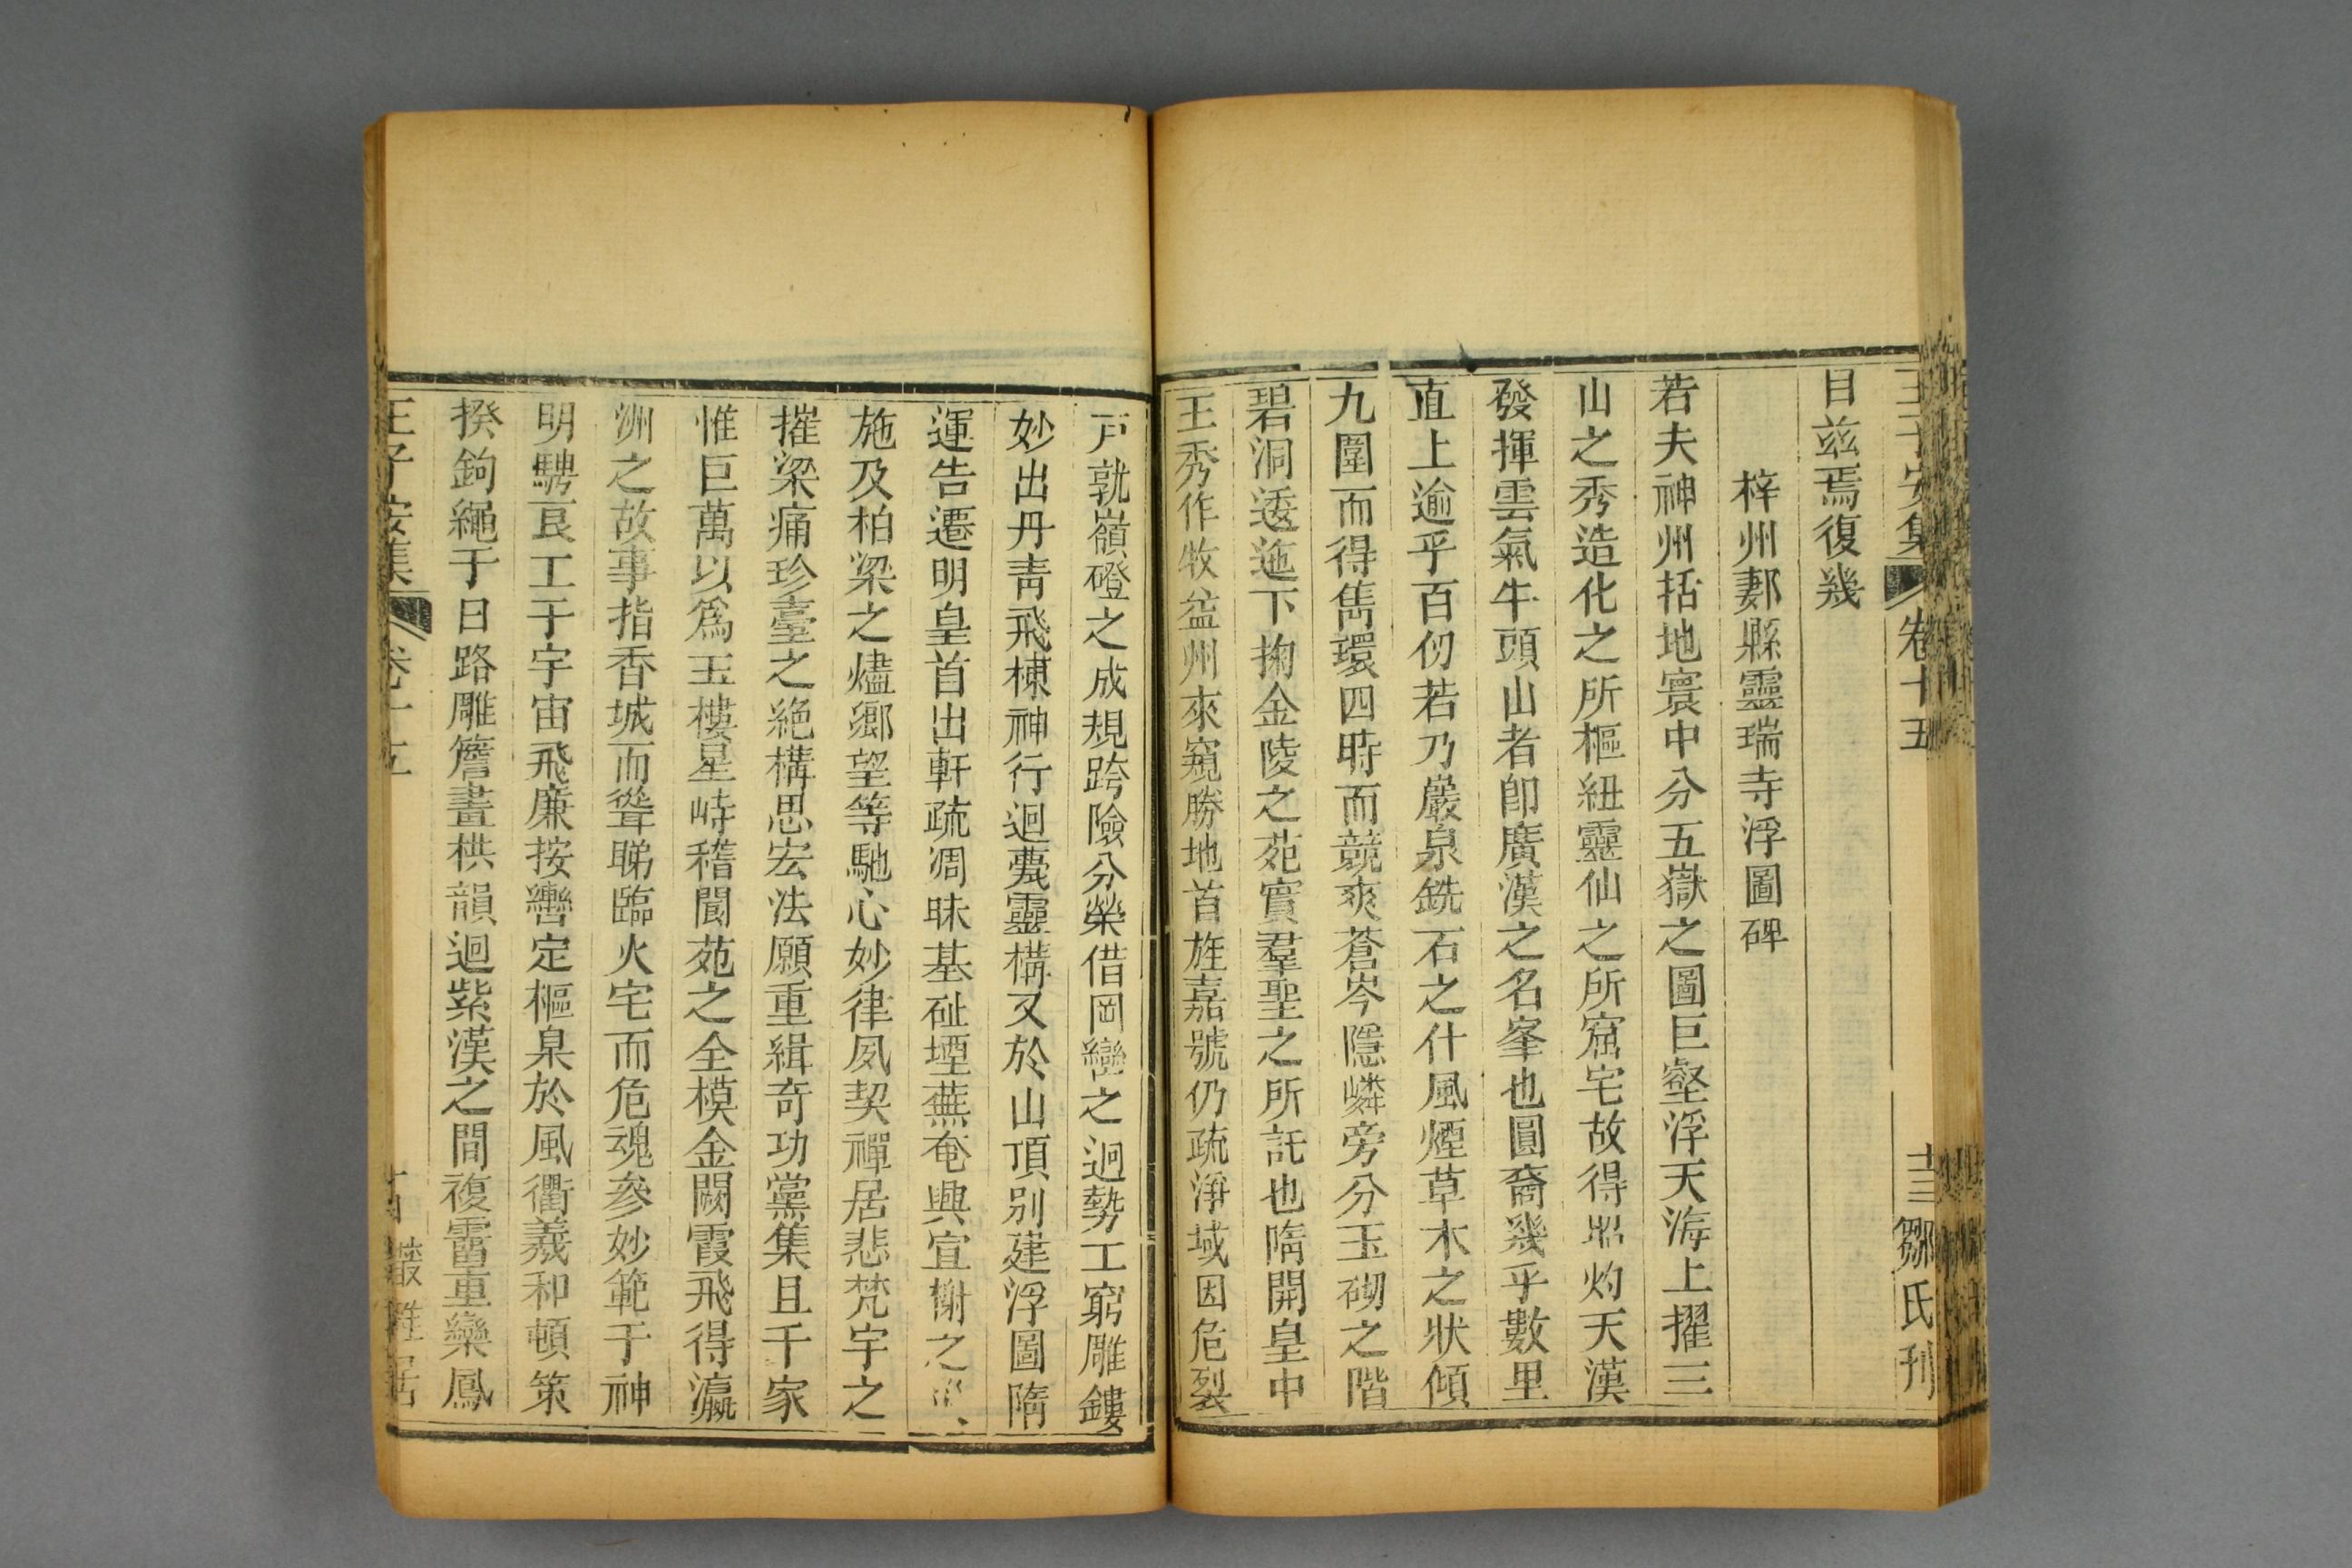 王子安集 卷十五 十三 鄒氏刊
目兹焉復幾
梓州郪縣靈瑞寺浮圖碑
若夫神州括地寰中分五嶽之圖巨壑浮天海上擢三
山之秀造化之所樞紐靈仙之所窟宅故得昭灼天漢
發揮雲氣牛頭山者卽廣漢之名峯也圓裔幾乎數里
直上逾乎百仞若乃巖泉銑石之什風煙草木之狀傾
九圍而得雋環四時而競爽蒼岑隱嶙旁分玉砌之階
碧洞逶迤下掬金陵之苑實羣聖之所託也隋開皇中
王秀作牧益州來窺勝地首旌嘉號仍疏淨域因危裂
戸就嶺磴之成規跨險分榮借岡巒之迥勢工窮雕鏤
妙出丹靑飛棟神行迴甍靈構又於山頂别建浮圖隋
運告遷明皇首出軒疏凋昧基砠堙蕪奄興宣榭之
施及柏梁之燼鄉望等馳心妙律夙契禪居悲梵宇之
摧梁痛珍臺之絶構思宏法願重緝奇功黨集且千家
惟巨萬以爲玉樓星峙稽閬苑之全模金闕霞飛得瀛
洲之故事指香城而聳睇臨火宅而危魂參妙範于神
明騁艮工于宇宙飛廉按轡定樞臬於風衢羲和頓策
揆鉤繩于日路雕簷畫栱韻迴紫漢之間複霤重欒鳳
王子安集 卷十五 十四 叢雅居